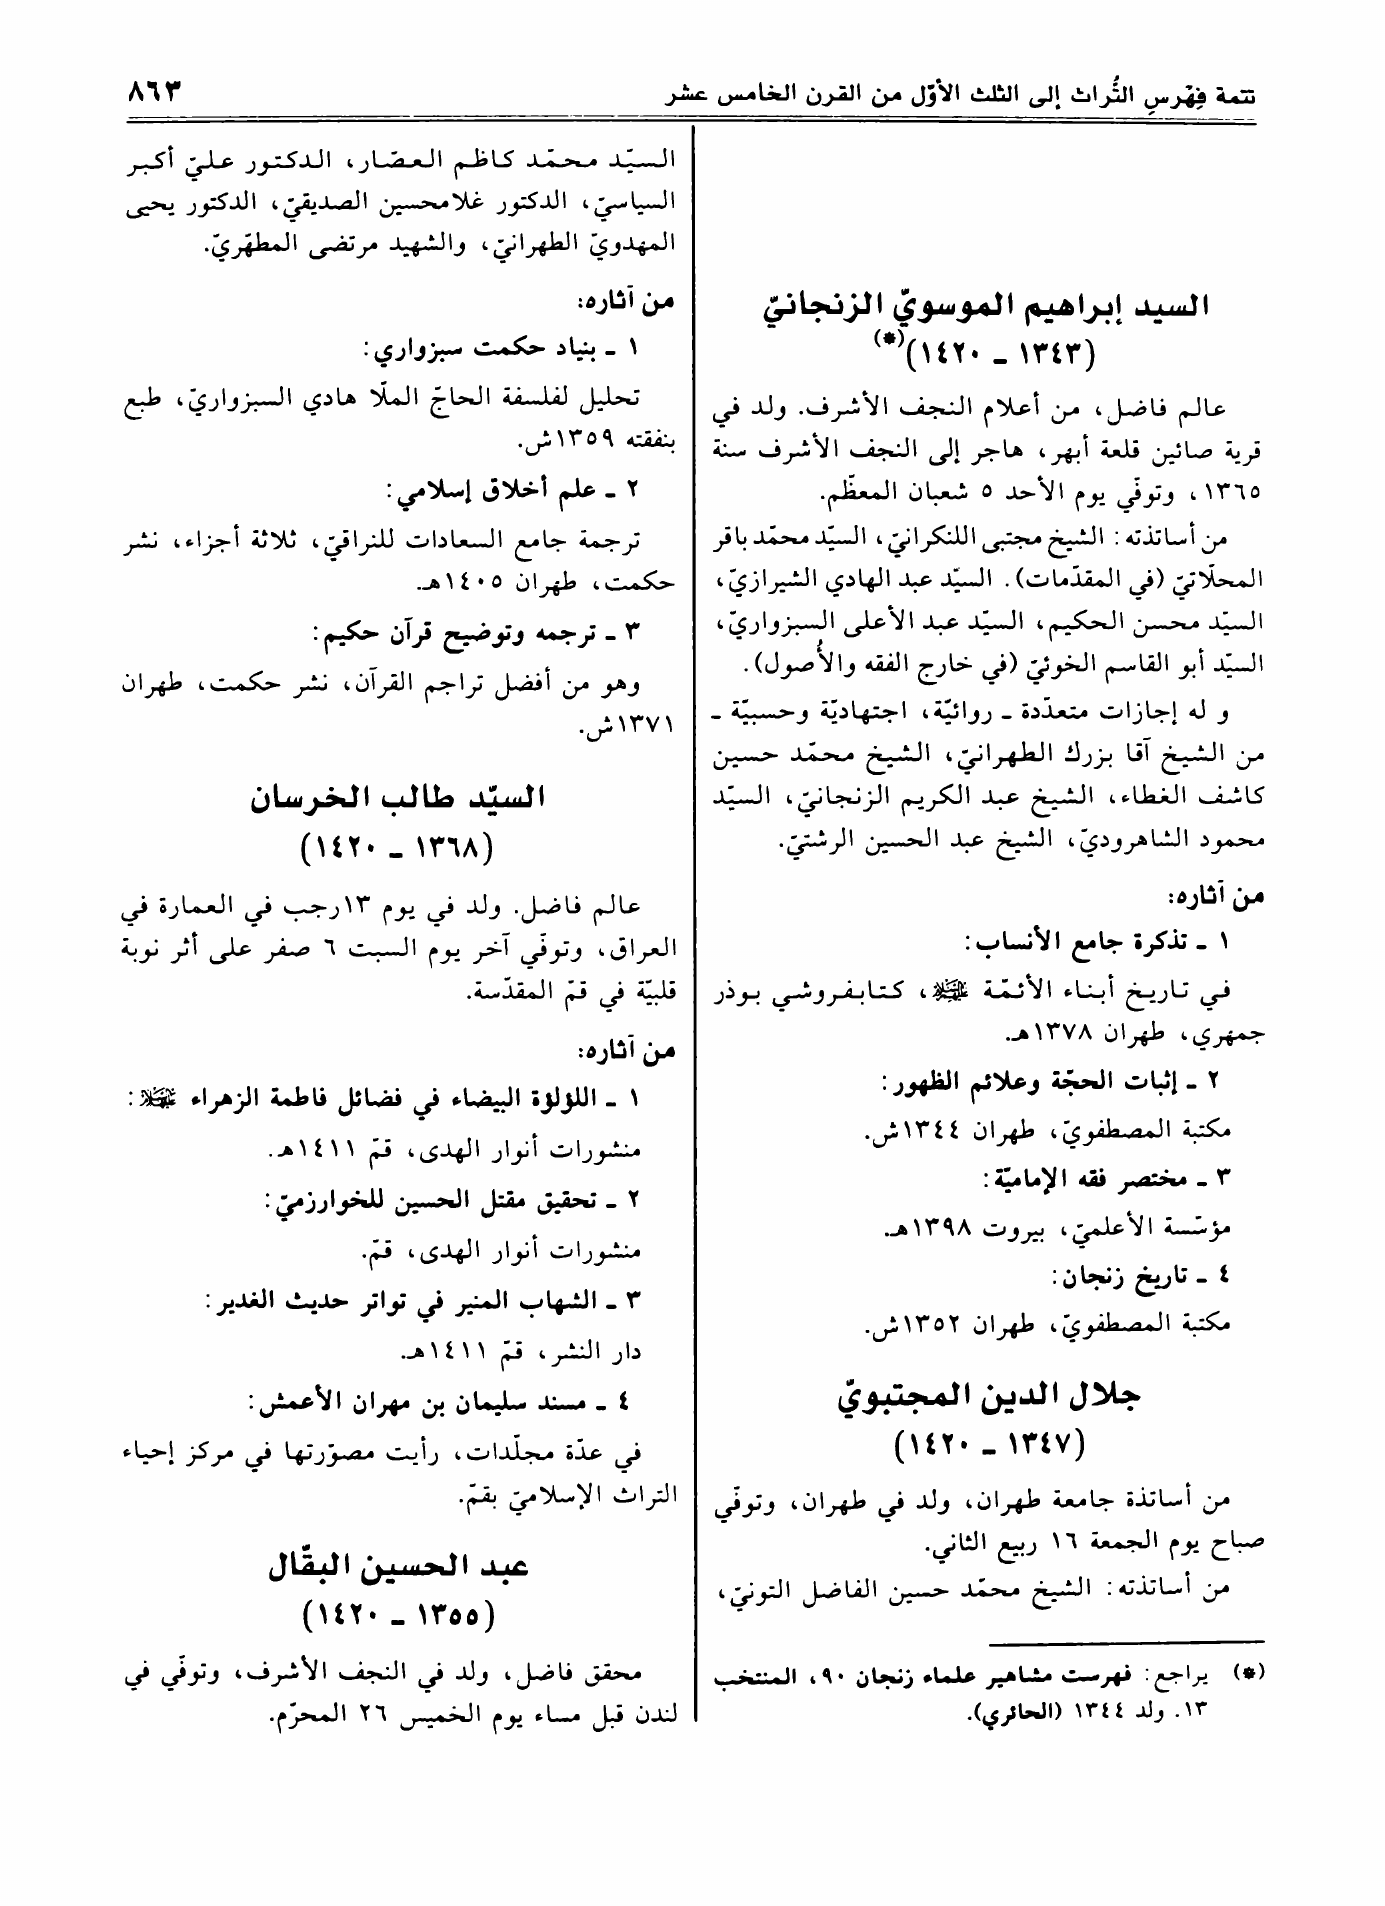 تتمة فِهْرسِ التُّراث إلى الثلث الأوّل من القرن الخامس عشر
٨٦٣
السيد إبراهيم الموسويّ الزنجانيّ
(١٣٤٣ ـ ١٤٢٠)(*)
عالم فاضل، من أعلام النجف الأشرف. ولد في
قرية صائين قلعة أبهر، هاجر إلى النجف الأشرف سنة
١٣٦٥، وتوفّي يوم الأحد ٥ شعبان المعظّم.
من أساتذته: الشيخ مجتبى اللنكرانيّ، السيّد محمّد باقر
المحلّاتيّ (في المقدّمات). السيّد عبد الهادي الشيرازيّ،
السيّد محسن الحكيم، السيّد عبد الأعلى السبزواريّ،
السيّد أبو القاسم الخوئيّ (في خارج الفقه والأُصول).
و له إجازات متعدّدة ـ روائيّة، اجتهاديّة وحسبيّة ـ
من الشيخ آقا بزرك الطهرانيّ، الشيخ محمّد حسين
كاشف الغطاء، الشيخ عبد الكريم الزنجانيّ، السيّد
محمود الشاهروديّ، الشيخ عبد الحسين الرشتيّ.
من آثاره:
١ ـ تذكرة جامع الأنساب:
في تاريخ أبناء الأئمّة ، كتابفروشي بوذر
جمهري، طهران ١٣٧٨هـ.
٢ ـ إثبات الحجّة وعلائم الظهور:
مكتبة المصطفويّ، طهران ١٣٤٤ش.
٣ ـ مختصر فقه الإماميّة:
مؤسّسة الأعلميّ، بيروت ١٣٩٨هـ.
٤ ـ تاريخ زنجان:
مكتبة المصطفويّ، طهران ١٣٥٢ش.
جلال الدين المجتبويّ
(١٣٤٧ ـ ١٤٢٠)
من أساتذة جامعة طهران، ولد في طهران، وتوفّي
صباح يوم الجمعة ١٦ ربيع الثاني.
من أساتذته: الشيخ محمّد حسين الفاضل التونيّ،
(*) يراجع: فهرست مشاهير علماء زنجان ٩٠، المنتخب
١٣. ولد ١٣٤٤ (الحائري).
السيّد محمّد كاظم العصّار، الدكتور عليّ أكبر
السياسيّ، الدكتور غلامحسين الصديقيّ، الدكتور يحيى
المهدويّ الطهرانيّ، والشهيد مرتضى المطهّريّ.
من آثاره:
١ ـ بنياد حكمت سبزواري:
تحليل لفلسفة الحاجّ الملّا هادي السبزواريّ، طبع
بنفقته ١٣٥٩ش.
٢ ـ علم أخلاق إسلامي:
ترجمة جامع السعادات للنراقيّ، ثلاثة أجزاء، نشر
حكمت، طهران ١٤٠٥هـ.
٣ ـ ترجمه وتوضيح قرآن حكيم:
وهو من أفضل تراجم القرآن، نشر حكمت، طهران
١٣٧١ش.
السيّد طالب الخرسان
(١٣٦٨ ـ ١٤٢٠)
عالم فاضل. ولد في يوم ١٣رجب في العمارة في
العراق، وتوفّي آخر يوم السبت ٦ صفر على أثر نوبة
قلبيّة في قمّ المقدّسة.
من آثاره:
١ ـ اللؤلؤة البيضاء في فضائل فاطمة الزهراء :
منشورات أنوار الهدى، قمّ ١٤١١هـ.
٢ ـ تحقيق مقتل الحسين للخوارزميّ:
منشورات أنوار الهدى، قمّ.
٣ ـ الشهاب المنير في تواتر حديث الغدير:
دار النشر، قمّ ١٤١١هـ.
٤ ـ مسند سليمان بن مهران الأعمش:
في عدّة مجلّدات، رأيت مصوّرتها في مركز إحياء
التراث الإسلاميّ بقمّ.
عبد الحسين البقّال
(١٣٥٥ ـ ١٤٢٠)
محقق فاضل، ولد في النجف الأشرف، وتوفّي في
لندن قبل مساء يوم الخميس ٢٦ المحرّم.